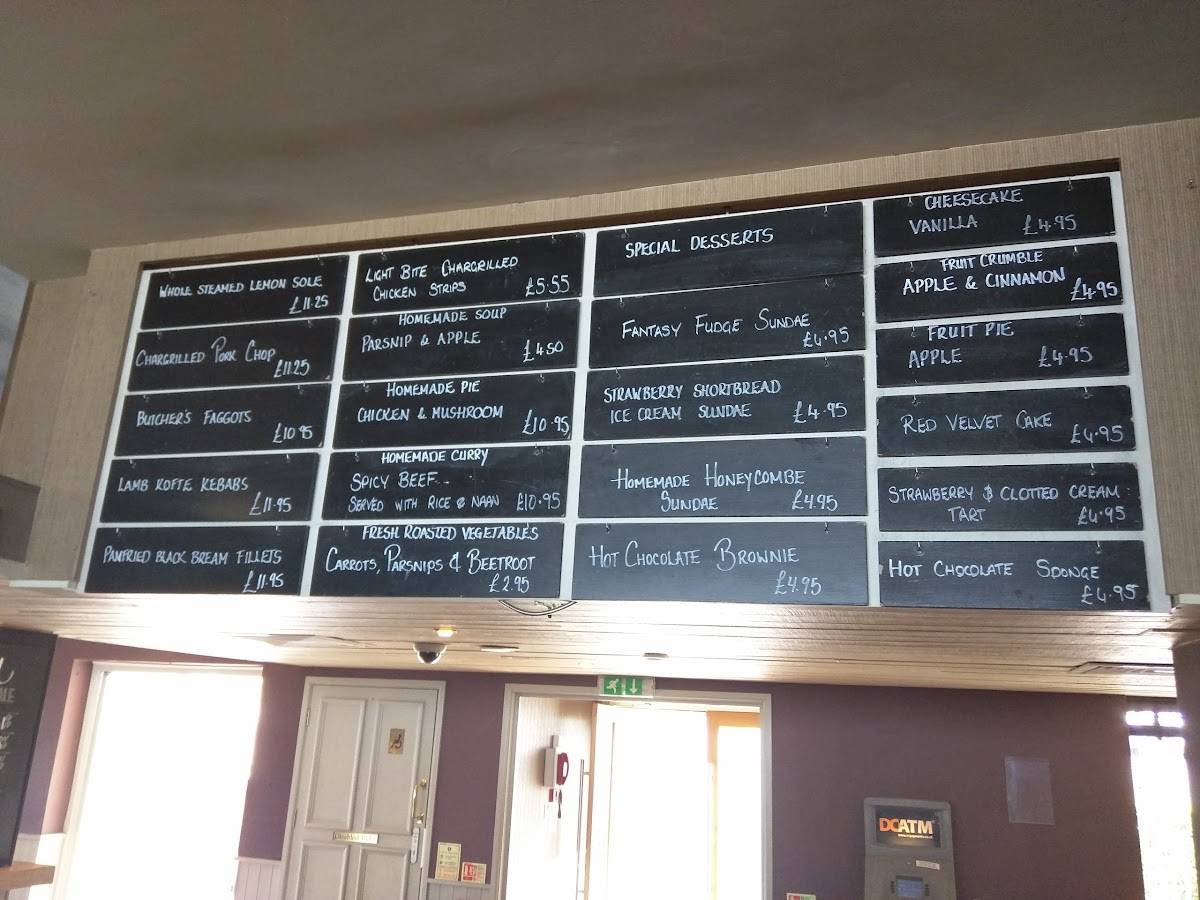 WHOLE STEAMED LEMON SOLE
£11.25
CHARGRILLED PORK CHOP
£11.25
BUTCHER'S FAGGOTS
£10.95
LAMB KOFTE KEBABS
£11.95
PANFRIED BLACK BREAM FILLETS
£11.95
LIGHT BITE CHARGRILLED
CHICKEN STRIPS £5.55
HOMEMADE SOUP
PARSNIP & APPLE
£4.50
HOMEMADE PIE
CHICKEN & MUSHROOM
£10.95
HOMEMADE CURRY
SPICY BEEF
SERVED WITH RICE & NAAN £10.95
FRESH ROASTED VEGETABLES
CARROTS, PARSNIPS & BEETROOT
£2.95
SPECIAL DESSERTS
FANTASY FUDGE SUNDAE
£4.95
STRAWBERRY SHORTBREAD
ICE CREAM SUNDAE £4.95
HOMEMADE HONEYCOMBE
SUNDAE £4.95
HOT CHOCOLATE BROWNIE
£4.95
CHEESECAKE
VANILLA £4.95
FRUIT CRUMBLE
APPLE & CINNAMON £4.95
FRUIT PIE
APPLE £4.95
RED VELVET CAKE
£4.95
STRAWBERRY & CLOTTED CREAM
TART £4.95
HOT CHOCOLATE SPONGE
£4.95
DCATM